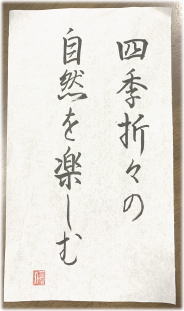 四季折々の
自然を楽しむ